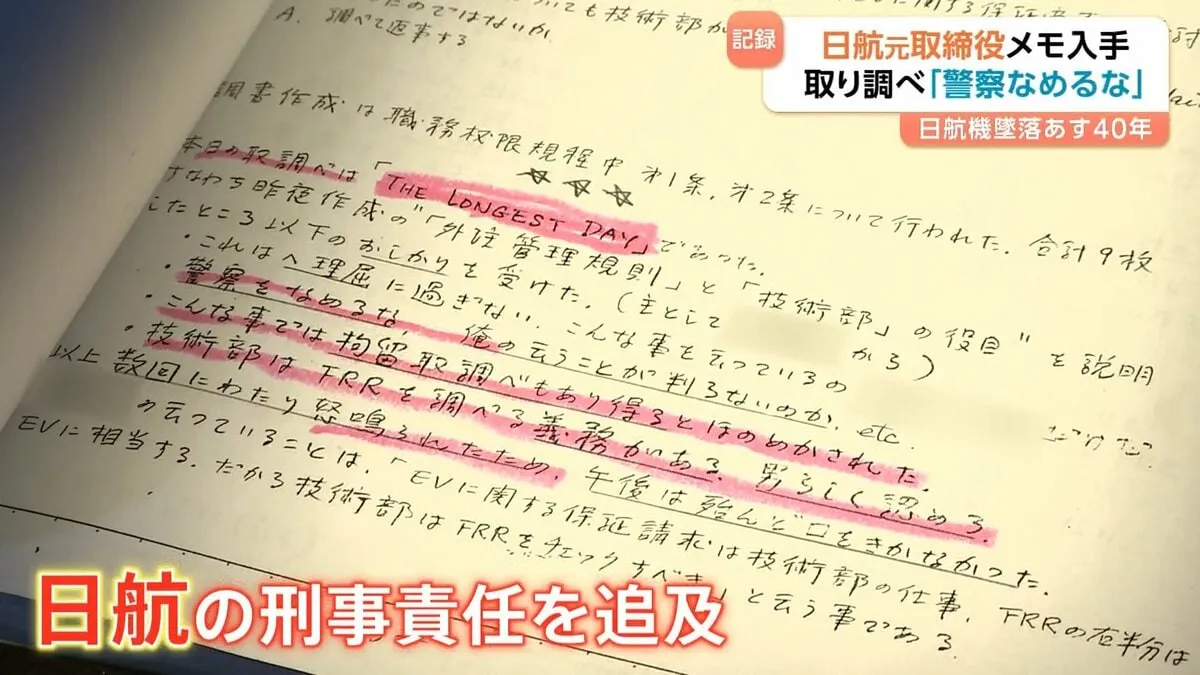 記録
日航元取締役メモ入手
取り調べ「警察なめるな」
日航機墜落あす40年
A. 調べて返事する
調書作成は職務权限規程中 才1条、才2条について行われた. 合計9枚
本日の取調べは「THE LONGEST DAY」であった.
すなわち昨夜作成の"「外注管理規則」と「技術部」の役目"を説明
したところ以下のおしかりを受けた. (主として から)
・これはヘ理屈に過ぎない. こんな事を云っているの
・警察をなめるな. 俺の云うことが判らないのか. etc.
・こんな事では拘留取調べもあり得るとほのめかされた.
・技術部はFRRを調べる義務がある. 男らしく認めろ.
以上数回にわたり怒鳴られたため. 午後は殆んど口をきかなかった.
の云っていることは、「EVに関する保証請求は技術部の仕事. FRRの右半分は
EVに相当する. だから技術部はFRRをチェックすべき」と云う事である.
日航の刑事責任を追及